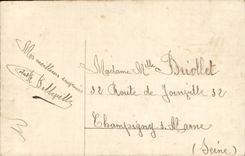 Mes meilleurs
Madame Mlle Briollet
32 Route de Joinville 32
Champigny s. Marne
(Seine)